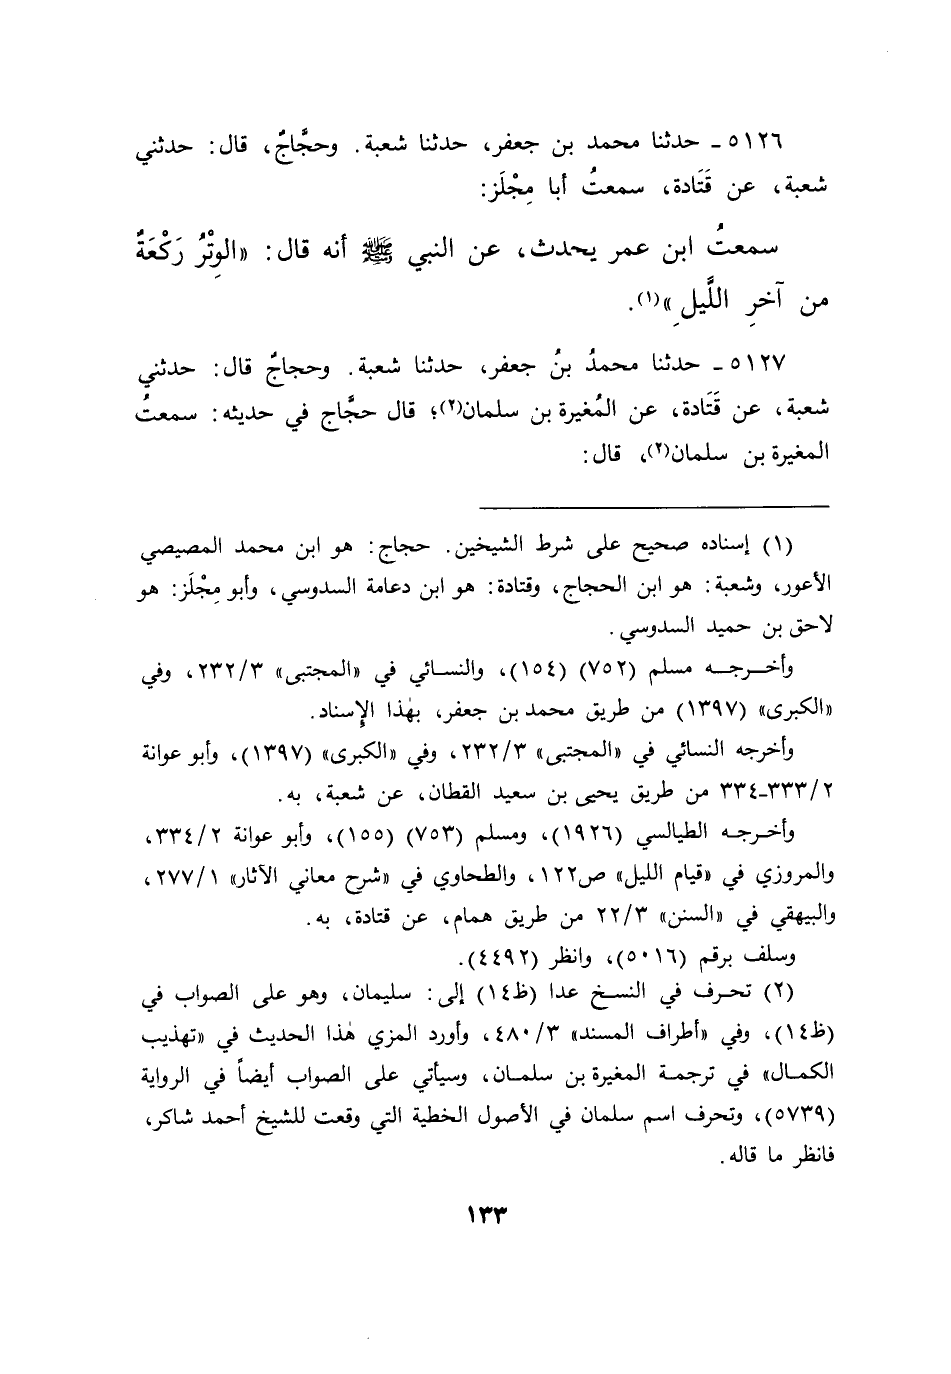 ٥١٢٦ ـ حدثنا محمد بن جعفر، حدثنا شعبة. وحجَّاجٌ، قال: حدثني
شعبة، عن قَتَادة، سمعتُ أبا مِجْلَز:
سمعتُ ابن عمر يحدث، عن النبي ﷺ أنه قال: «الوِتْرُ رَكْعَةٌ
من آخرِ اللَّيلِ»(١).
٥١٢٧ ـ حدثنا محمدُ بنُ جعفر، حدثنا شعبة. وحجاجٌ قال: حدثني
شعبة، عن قَتَادة، عن المُغيرة بن سلمان(٢)؛ قال حجَّاج في حديثه: سمعتُ
المغيرة بن سلمان(٢)، قال:
(١) إسناده صحيح على شرط الشيخين. حجاج: هو ابن محمد المصيصي
الأعور، وشعبة: هو ابن الحجاج، وقتادة: هو ابن دعامة السدوسي، وأبو مِجْلَز: هو
لاحق بن حميد السدوسي.
وأخرجه مسلم (٧٥٢) (١٥٤)، والنسائي في «المجتبى» ٢٣٢/٣، وفي
«الكبرى» (١٣٩٧) من طريق محمد بن جعفر، بهٰذا الإسناد.
وأخرجه النسائي في «المجتبى» ٢٣٢/٣، وفي «الكبرى» (١٣٩٧)، وأبو عوانة
٣٣٣/٢ـ٣٣٤ من طريق يحيى بن سعيد القطان، عن شعبة، به.
وأخرجه الطيالسي (١٩٢٦)، ومسلم (٧٥٣) (١٥٥)، وأبو عوانة ٣٣٤/٢،
والمروزي في «قيام الليل» ص١٢٢، والطحاوي في «شرح معاني الآثار» ٢٧٧/١،
والبيهقي في «السنن» ٢٢/٣ من طريق همام، عن قتادة، به.
وسلف برقم (٥٠١٦)، وانظر (٤٤٩٢).
(٢) تحرف في النسخ عدا (ظ١٤) إلى: سليمان، وهو على الصواب في
(ظ١٤)، وفي «أطراف المسند» ٤٨٠/٣، وأورد المزي هٰذا الحديث في «تهذيب
الكمال» في ترجمة المغيرة بن سلمان، وسيأتي على الصواب أيضاً في الرواية
(٥٧٣٩)، وتحرف اسم سلمان في الأصول الخطية التي وقعت للشيخ أحمد شاكر،
فانظر ما قاله.
١٣٣